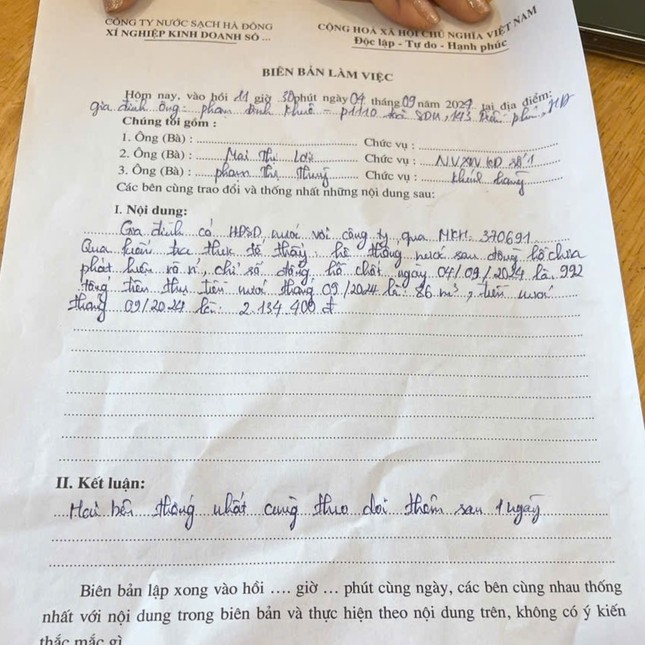 CÔNG TY NƯỚC SẠCH HÀ ĐÔNG
XÍ NGHIỆP KINH DOANH SỐ ...
CỘNG HOÀ XÃ HỘI CHỦ NGHĨA VIỆT NAM
Độc lập - Tự do - Hạnh phúc
BIÊN BẢN LÀM VIỆC
Hôm nay, vào hồi 11 giờ 30 phút ngày 04 tháng 09 năm 2024 tại địa điểm:
Gia đình ông: phạm đình Khuê - p1110 toà SDU, 143 trần phú, HĐ
Chúng tôi gồm :
1. Ông (Bà) : Chức vụ :
2. Ông (Bà) : Mai Thị Chức vụ : N.V
3. Ông (Bà) : phạm Thị Chức vụ : khách hàng
Các bên cùng trao đổi và thống nhất những nội dung sau:
I. Nội dung:
Gia đình có HĐSD nước với công ty, qua MKH: 370691
Qua kiểm tra thực tế thấy: hệ thống nước sau đồng hồ chưa
phát hiện rò rỉ, chỉ số đồng hồ chốt ngày 04/09/2024 là 992
tổng tiêu thụ tiền nước tháng 09/2024 là: 86 m³, tiền nước
tháng 09/2024 là: 2.134.400 đ
II. Kết luận:
Hai bên thống nhất cùng theo dõi thêm sau 1 ngày
Biên bản lập xong vào hồi .... giờ ... phút cùng ngày, các bên cùng nhau thống
nhất với nội dung trong biên bản và thực hiện theo nội dung trên, không có ý kiến
thắc mắc gì